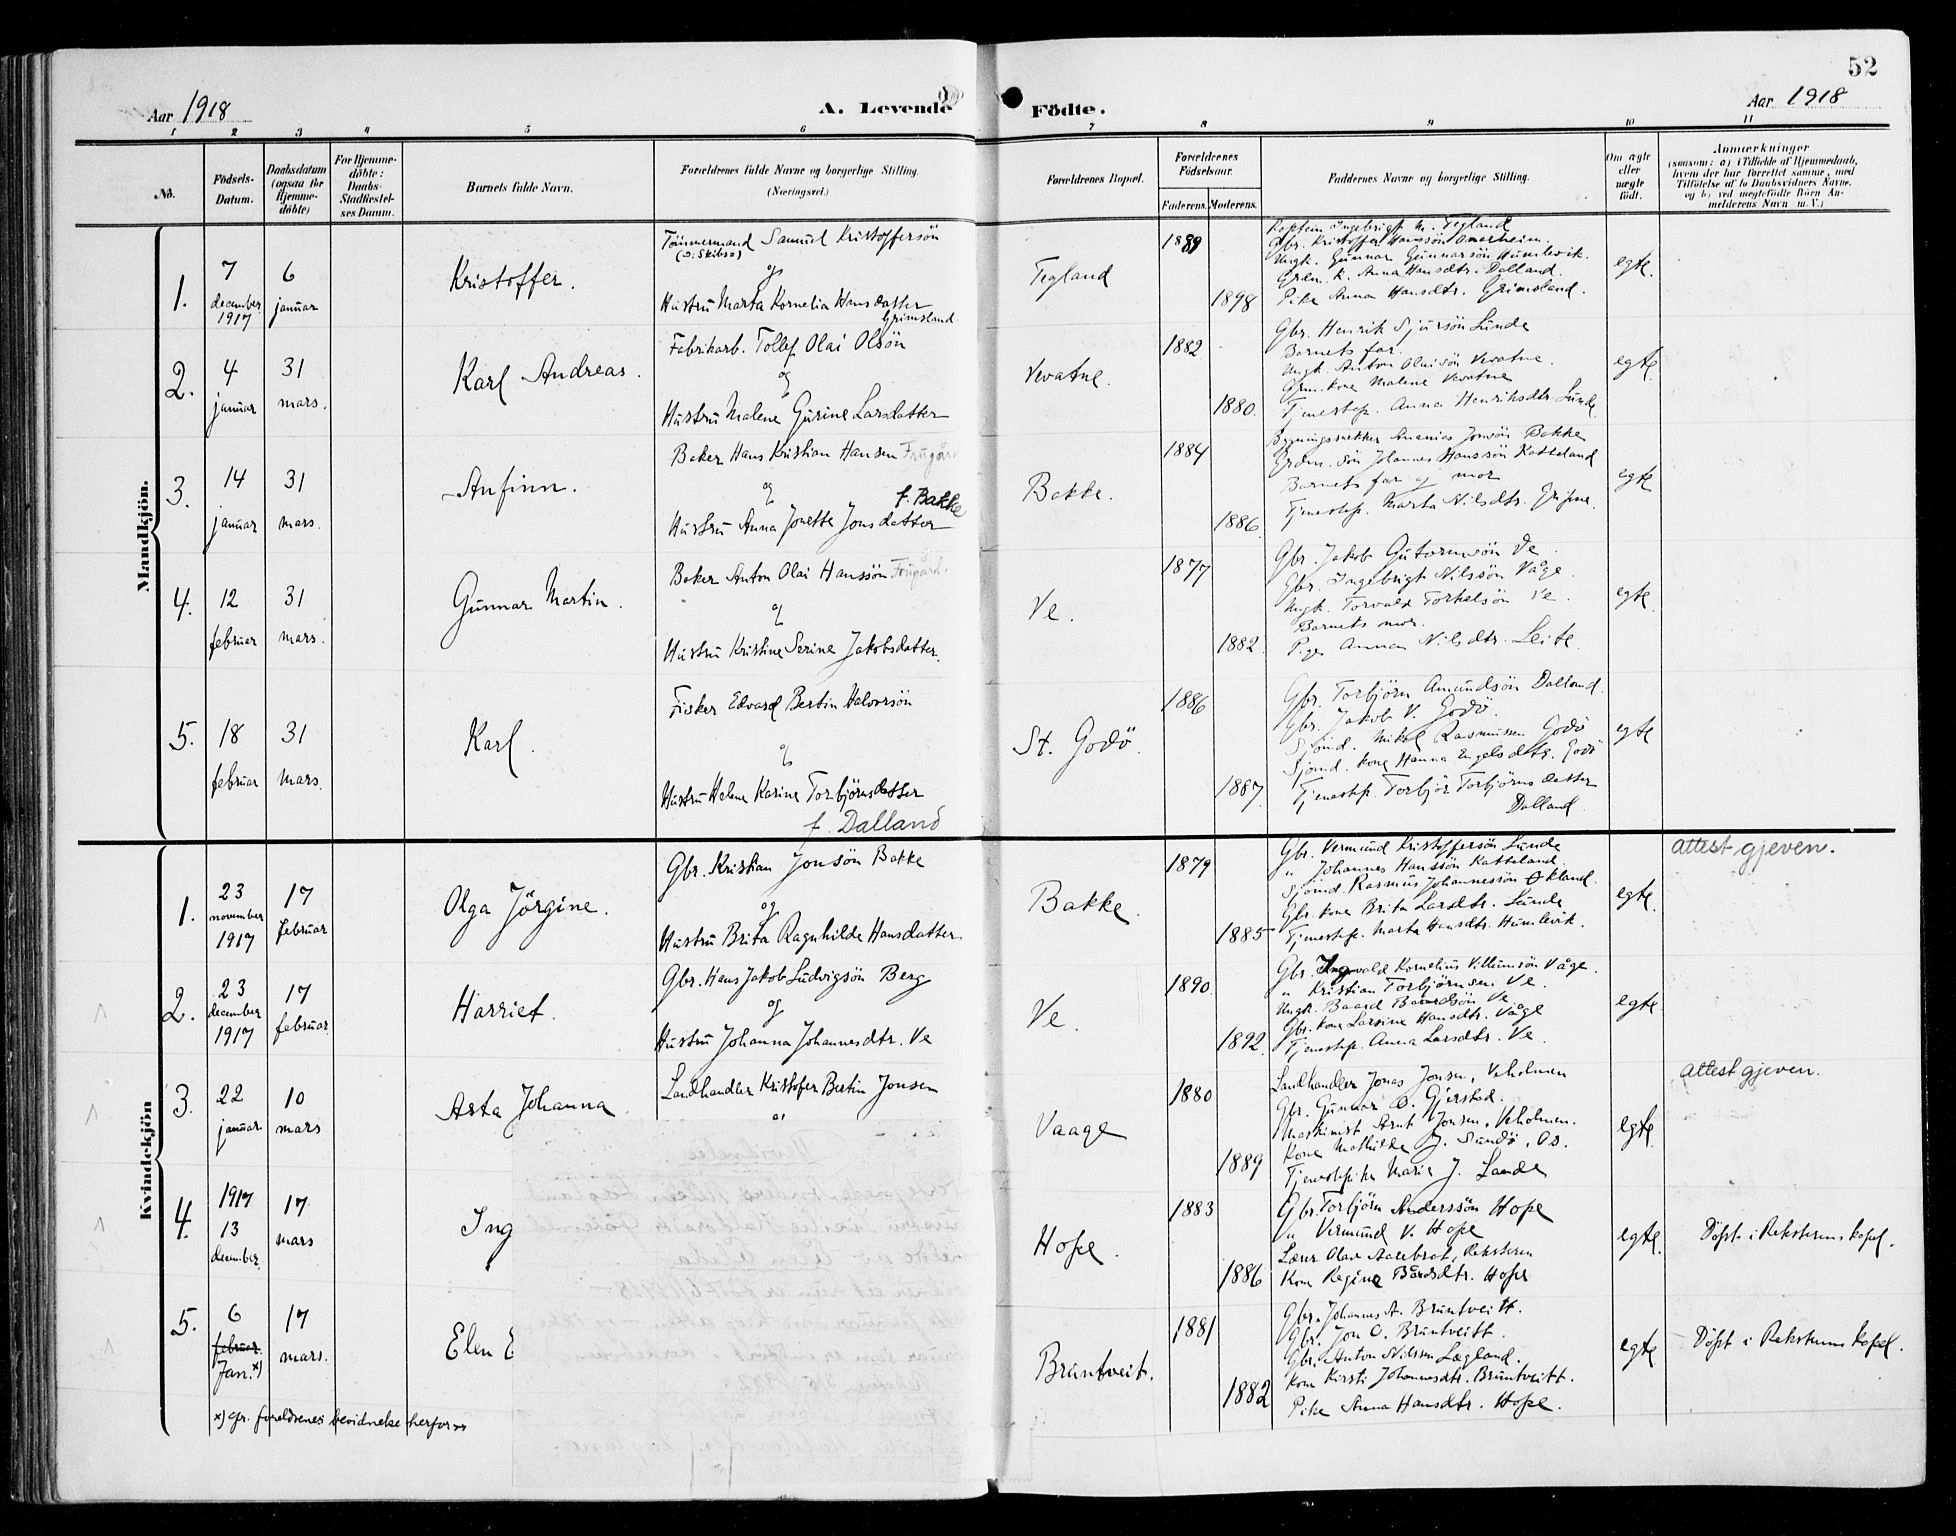 52
Aar 1918
A. Levende Födte.
Aar 1918
1 2 3 4 5 6 7 8 9 10 11
No.
Födsels-
Datum.
Daabsdatum
(ogsaa for
Hjemme-
döbte)
For Hjemme-
döbte:
Daabs-
Stadfæstel-
ses Datum.
Barnets fulde Navn.
Forældrenes fulde Navne og borgerlige Stilling.
(Næringsvei.)
Forældrenes Bopæl.
Forældrenes
Födselsaar.
Faderens.
Moderens.
Faddernes Navne og borgerlige Stilling.
Om ægte
eller
uægte
födt.
Anmærkninger
(saasom: a) i Tilfælde af Hjemmedaab,
hvem der har forrettet samme, med
Tilföielse af to Daabsvidners Navne,
og b) ved uegtefödte Börn An-
melderens Navn m. V.)
Mandkjön.
1.
7
december
1917
6
januar
Kristoffer.
Tömmermand Samuel Kristoffersön
og
Hustru Marta Kornelia Hansdatter
Grimsland.
Tegland
1889
1898
Ingebrigt M. Tegland
Gbr. Kristoffer Hanssön Onarheim.
Ungk. Gunnar Gunnarsön Humlevik.
Grdm. k. Anna Hansdtr. Dalland.
Pike Anna Hansdtr. Grimsland.
egte.
2.
4
januar
31
mars.
Karl Andreas.
Fabrikarb. Tollef Olai Olsön
og
Hustru Malene Gurine Larsdatter
Vevatne.
1882
1880.
Gbr. Henrik Sjursön Lunde
Barnets far.
Ungk Anton Olaisön Vevatne.
Grm. kone Malene Vevatne
Tjenestep. Anna Henriksdtr. Lunde
egte.
3.
14
januar
31
mars.
Anfinn.
Baker Hans Kristian Hansen Frugård
og
f. Bakke
Hustru Anna Jonette Jonsdatter
Bakke.
1884
1886.
Ananias Jonsön Bakke
Grdm. sön Johannes Hanssön Katteland
Barnets far og mor
Tjenestep. Marta Nilsdtr.
egte
4.
12
februar
31
mars.
Gunnar Martin.
Baker Anton Olai Hanssön Frugård.
og
Hustru Kristine Serine Jakobsdatter.
Ve.
1877
1882.
Gbr. Jakob Gutormsön Ve.
Gbr. Ingebrigt Nilssön Våge.
Ungk. Torvald Torkelsön Ve.
Barnets mor.
Pige Anna Nilsdtr. Leite.
egte.
5.
18
februar
31
mars.
Karl.
Fisker Edvard Bertin Halvorsön
og
Hustru Helene Karine Torbjörnsdatter
f. Dalland
St. Godö.
1886
1887.
Gbr. Torbjörn Amundsön Dalland.
Gbr. Jakob V. Godö.
Sjömd. Mikal Rasmussen Godö
Sjömd. kone Hanna Engelsdtr. Godö
Tjenestep. Torbjör Torbjörnsdatter
Dalland.
egte
Kvindekjön
1.
23
november
1917
17
februar
Olga Jörgine.
Gbr. Kristian Jonsön Bakke
og
Hustru Brita Ragnhilde Hansdatter.
Bakke.
1879
1885
Gbr. Vermund Kristoffersön Lunde
" Johannes Hanssön Katteland.
Sjömd. Rasmus Johannessön Økland.
Gbr. kone Brita Larsdtr. Lunde
Tjenestep. Marta Hansdtr. Humlevik.
egte.
attest gjeven.
2.
23
december
1917
17
februar.
Harriet.
Gbr. Hans Jakob Ludvigsön Berg
og
Hustru Johanna Johannesdtr. Ve
Ve.
1890.
1892.
Gbr. Ingvald Kornelius Villumsön Våge.
" Kristian Torbjörnsen Ve.
Ungk. Baard Baardsön Ve
Gbr. kone Larsine Hansdtr. Våge
Tjenestep. Anna Larsdtr. Ve.
egte
3.
22
januar
10
mars
Asta Johanna.
Landhandler Kristofer Bertin Jonsen
Vaage
1880
1889
Landhandler Jonas Jonsen, Veholmen
Gbr. Gunnar O. Gjerstad.
Maskinist Arnt Jonsen, Veholmen.
Kone Mathilde J. Sundö, Os.
Tjenestepike Marie J. Lande
egte.
attest gjeven.
4.
1917
13
december.
17
mars
Ing
Hope.
1883
1886
Gbr. Torbjörn Anderssön Hope
" Vermund V. Hope
Lærer Olav Aarebrot, Reksteren
Kone Regine Bårdsdtr. Hope
egte.
Döpt i Reksterens kapel.
5.
6
februar
Jan. x)
17
mars.
Elen E
Bruntveit.
1881
1882
Gbr. Johannes A. Bruntveitt.
Gbr. Jon O. Bruntveitt.
Gbr. Anton Nilssen Lægland.
Kone Kirsti Johannesdtr. Bruntveitt.
Pike Anna Hansdtr. Hope.
egte
Döpt i Reksterens kapel.
x) cfr. foreldrenes bevidnelse herfor